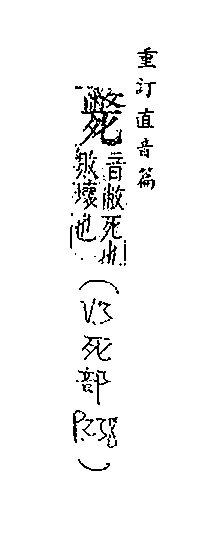 重訂直音篇
斃
音敝死也
敗壞也
（V.3
死
部
P.238
）